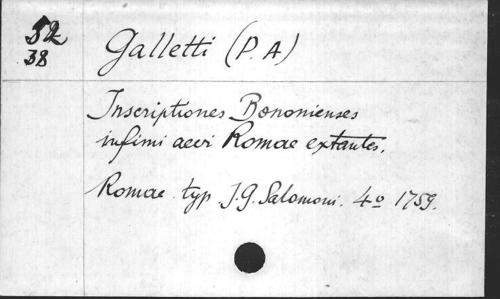 52
38
Galletti (P. A)
Inscriptiones Bononienses
infimi aevi Romae extantes.
Romae typ J. G. Salomoni. 4º 1759.